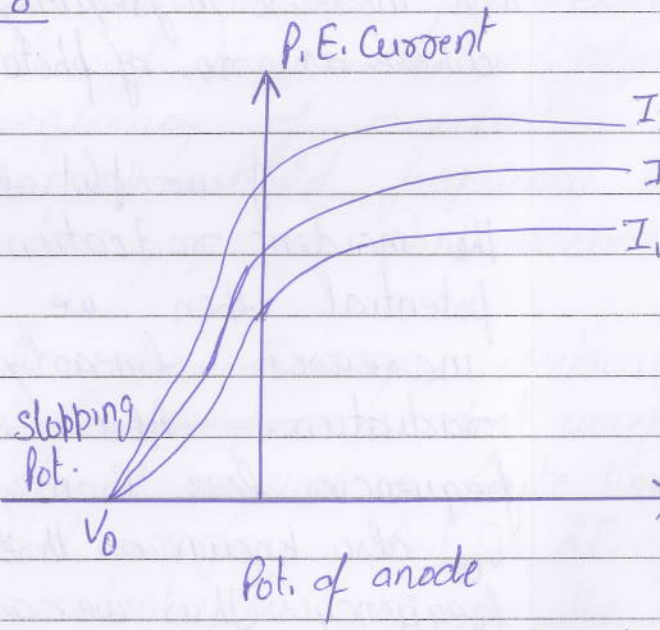 P.E. Current
I
I
I
stopping
Pot.
V0
Pot. of anode